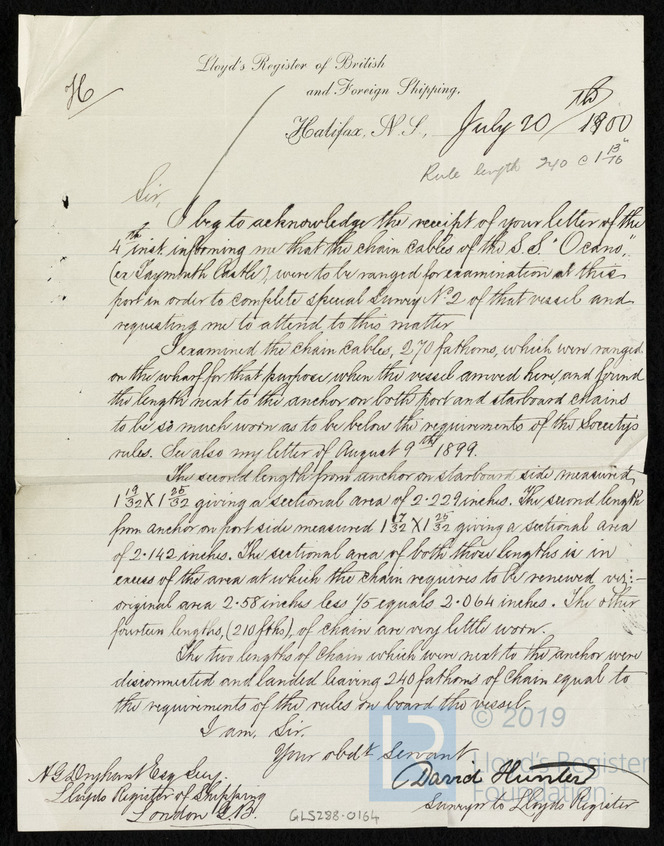 Lloyd's Register of British
and Foreign Shipping,
H
Halifax, N.S., July 20th 1900
Rule length 240 @ 1 13/16"
Sir,
I beg to acknowledge the receipt of your letter of the
4th inst. informing me that the chain cables of the S.S. "Ocamo,"
(ex Taymouth Castle), were to be ranged for examination at this
port in order to complete special survey No 2 of that vessel and
requesting me to attend to this matter
I examined the chain cables, 270 fathoms, which were ranged
on the wharf for that purpose when the vessel arrived here, and found
the length next to the anchor on both port and starboard chains
to be so much worn as to be below the requirements of the Society's
rules. See also my letter of August 9th 1899.
The second length from anchor on starboard side measured
1 19/32 X 1 25/32 giving a sectional area of 2.229 inches. The second length
from anchor on port side measured 1 17/32 X 1 25/32 giving a sectional area
of 2.142 inches. The sectional area of both those lengths is in
excess of the area at which the chain requires to be renewed viz:-
original area 2.58 inches less 1/5 equals 2.064 inches. The other
fourteen lengths, (210 fths), of chain are very little worn.
The two lengths of chain which were next to the anchor were
disconnected and landed leaving 240 fathoms of chain equal to
the requirements of the rules on board the vessel
I am, Sir,
Your obdt servant
David Hunter
Surveyor to Lloyds Register
A G Dryhurst Esq Secy.
Lloyds Register of Shipping
London E.B.
GLS288-0164
© 2019
Lloyd's Register
Foundation